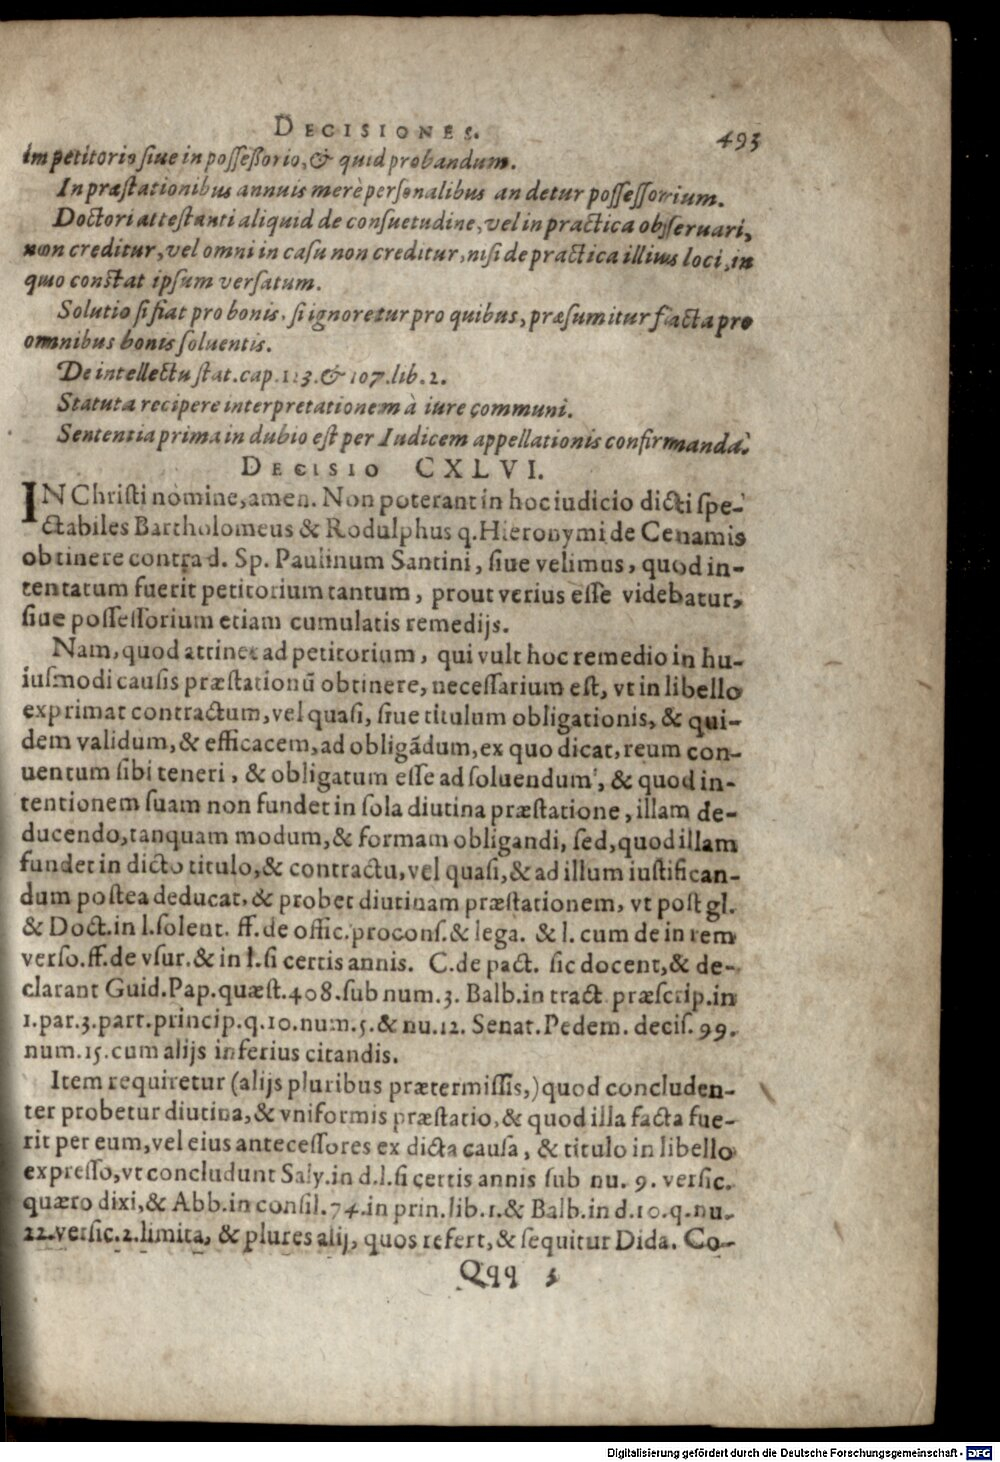 DECISIONES. 493
impetitorio siue in possessorio, & quid probandum.
In præstationibus annuis merè personalibus an detur possessorium.
Doctori attestanti aliquid de consuetudine, vel in practica obseruari,
non creditur, vel omni in casu non creditur, nisi de practica illius loci, in
quo constat ipsum versatum.
Solutio si fiat pro bonis, si ignoretur pro quibus, præsumitur facta pro
omnibus bonis soluentis.
De intellectu stat. cap. 113. & 107. lib. 2.
Statuta recipere interpretationem à iure communi.
Sententia prima in dubio est per Iudicem appellationis confirmanda.
DECISIO CXLVI.
IN Christi nomine, amen. Non poterant in hoc iudicio dicti spe-
ctabiles Bartholomeus & Rodulphus q. Hieronymi de Cenamis
obtinere contra d. Sp. Paulinum Santini, siue velimus, quod in-
tentatum fuerit petitorium tantum, prout verius esse videbatur,
siue possessorium etiam cumulatis remedijs.
Nam, quod attinet ad petitorium, qui vult hoc remedio in hu-
iusmodi causis præstationū obtinere, necessarium est, vt in libello
exprimat contractum, vel quasi, siue titulum obligationis, & qui-
dem validum, & efficacem, ad obligādum, ex quo dicat, reum con-
uentum sibi teneri, & obligatum esse ad soluendum, & quod in-
tentionem suam non fundet in sola diutina præstatione, illam de-
ducendo, tanquam modum, & formam obligandi, sed, quod illam
fundet in dicto titulo, & contractu, vel quasi, & ad illum iustifican-
dum postea deducat, & probet diutinam præstationem, vt post gl.
& Doct. in l. solent. ff. de offic. procons. & lega. & l. cum de in rem
verso. ff. de vsur. & in l. si certis annis. C. de pact. sic docent, & de-
clarant Guid. Pap. quæst. 408. sub num. 3. Balb. in tract. præscrip. in
1. par. 3. part. princip. q. 10. num. 5. & nu. 12. Senat. Pedem. decis. 99.
num. 15. cum alijs inferius citandis.
Item requiretur (alijs pluribus prætermissis,) quod concluden-
ter probetur diutina, & vniformis præstatio, & quod illa facta fue-
rit per eum, vel eius antecessores ex dicta causa, & titulo in libello
expresso, vt concludunt Saly. in d. l. si certis annis sub nu. 9. versic.
quæro dixi, & Abb. in consil. 74. in prin. lib. 1. & Balb. in d. 10. q. nu.
22. versic. 2. limita, & plures alij, quos refert, & sequitur Dida. Co-
Qqq 3
Digitalisierung gefördert durch die Deutsche Forschungsgemeinschaft - DFG